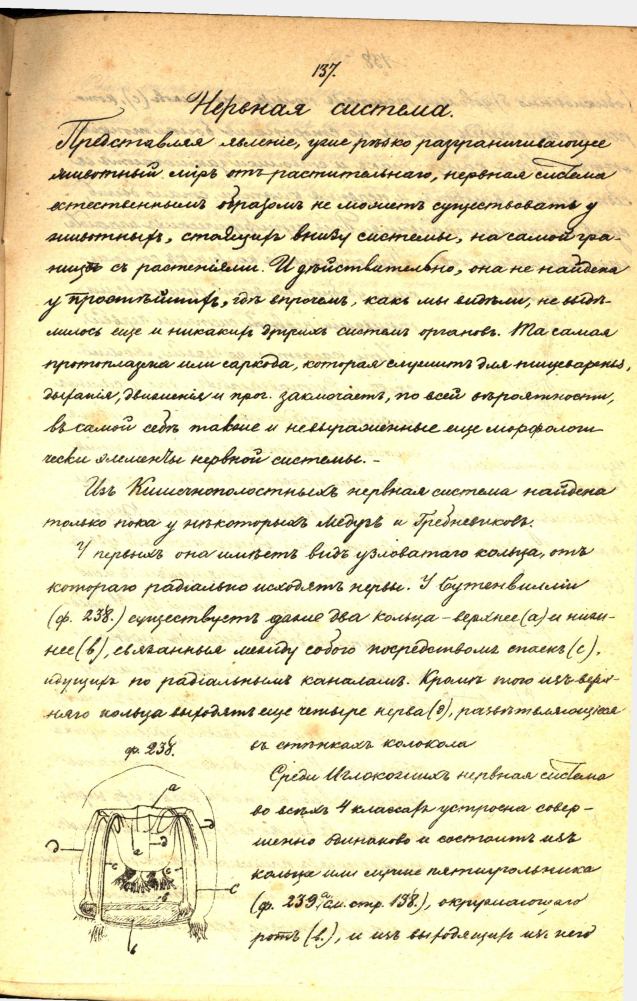 137.
Нервная система.
Представляя явленіе, уже рѣзко разграничивающее
животный міръ отъ растительнаго, нервная система
естественнымъ образомъ не можетъ существовать у
животныхъ, стоящихъ внизу системы, на самой гра-
ницѣ съ растеніями. И дѣйствительно, она не найдена
у простѣйшихъ, гдѣ впрочемъ, какъ мы видѣли, не выдѣ-
лилось еще и никакихъ другихъ системъ органовъ. Та самая
протоплазма или саркода, которая служитъ для пищеваренья,
дыханія, движенія и проч. заключаетъ, по всей вѣроятности,
въ самой себѣ также и невыраженные еще морфологи-
чески элементы нервной системы. –
Изъ Кишечнополостныхъ нервная система найдена
только пока у нѣкоторыхъ Медузъ и Гребневиковъ.
У первыхъ она имѣетъ видъ узловатаго кольца, отъ
котораго радіально исходятъ нервы. У Бугенвилліи
(ф. 238.) существуетъ даже два кольца – верхнее (а) и ниж-
нее (в), связанныя между собою посредствомъ спаекъ (с),
идущихъ по радіальнымъ каналамъ. Кромѣ того изъ верх-
няго кольца выходятъ еще четыре нерва (д), развѣтвляющіеся
въ стѣнкахъ колокола
ф. 238.
Среди Иглокожихъ нервная система
во всѣхъ 4 классахъ устроена совер-
шенно одинаково и состоитъ изъ
кольца или лучше пятиугольника
(ф. 239, см. стр. 138.), окружающаго
ротъ (в.), и изъ выходящихъ изъ него
а
д
д
а
д
с
с
в
с
в